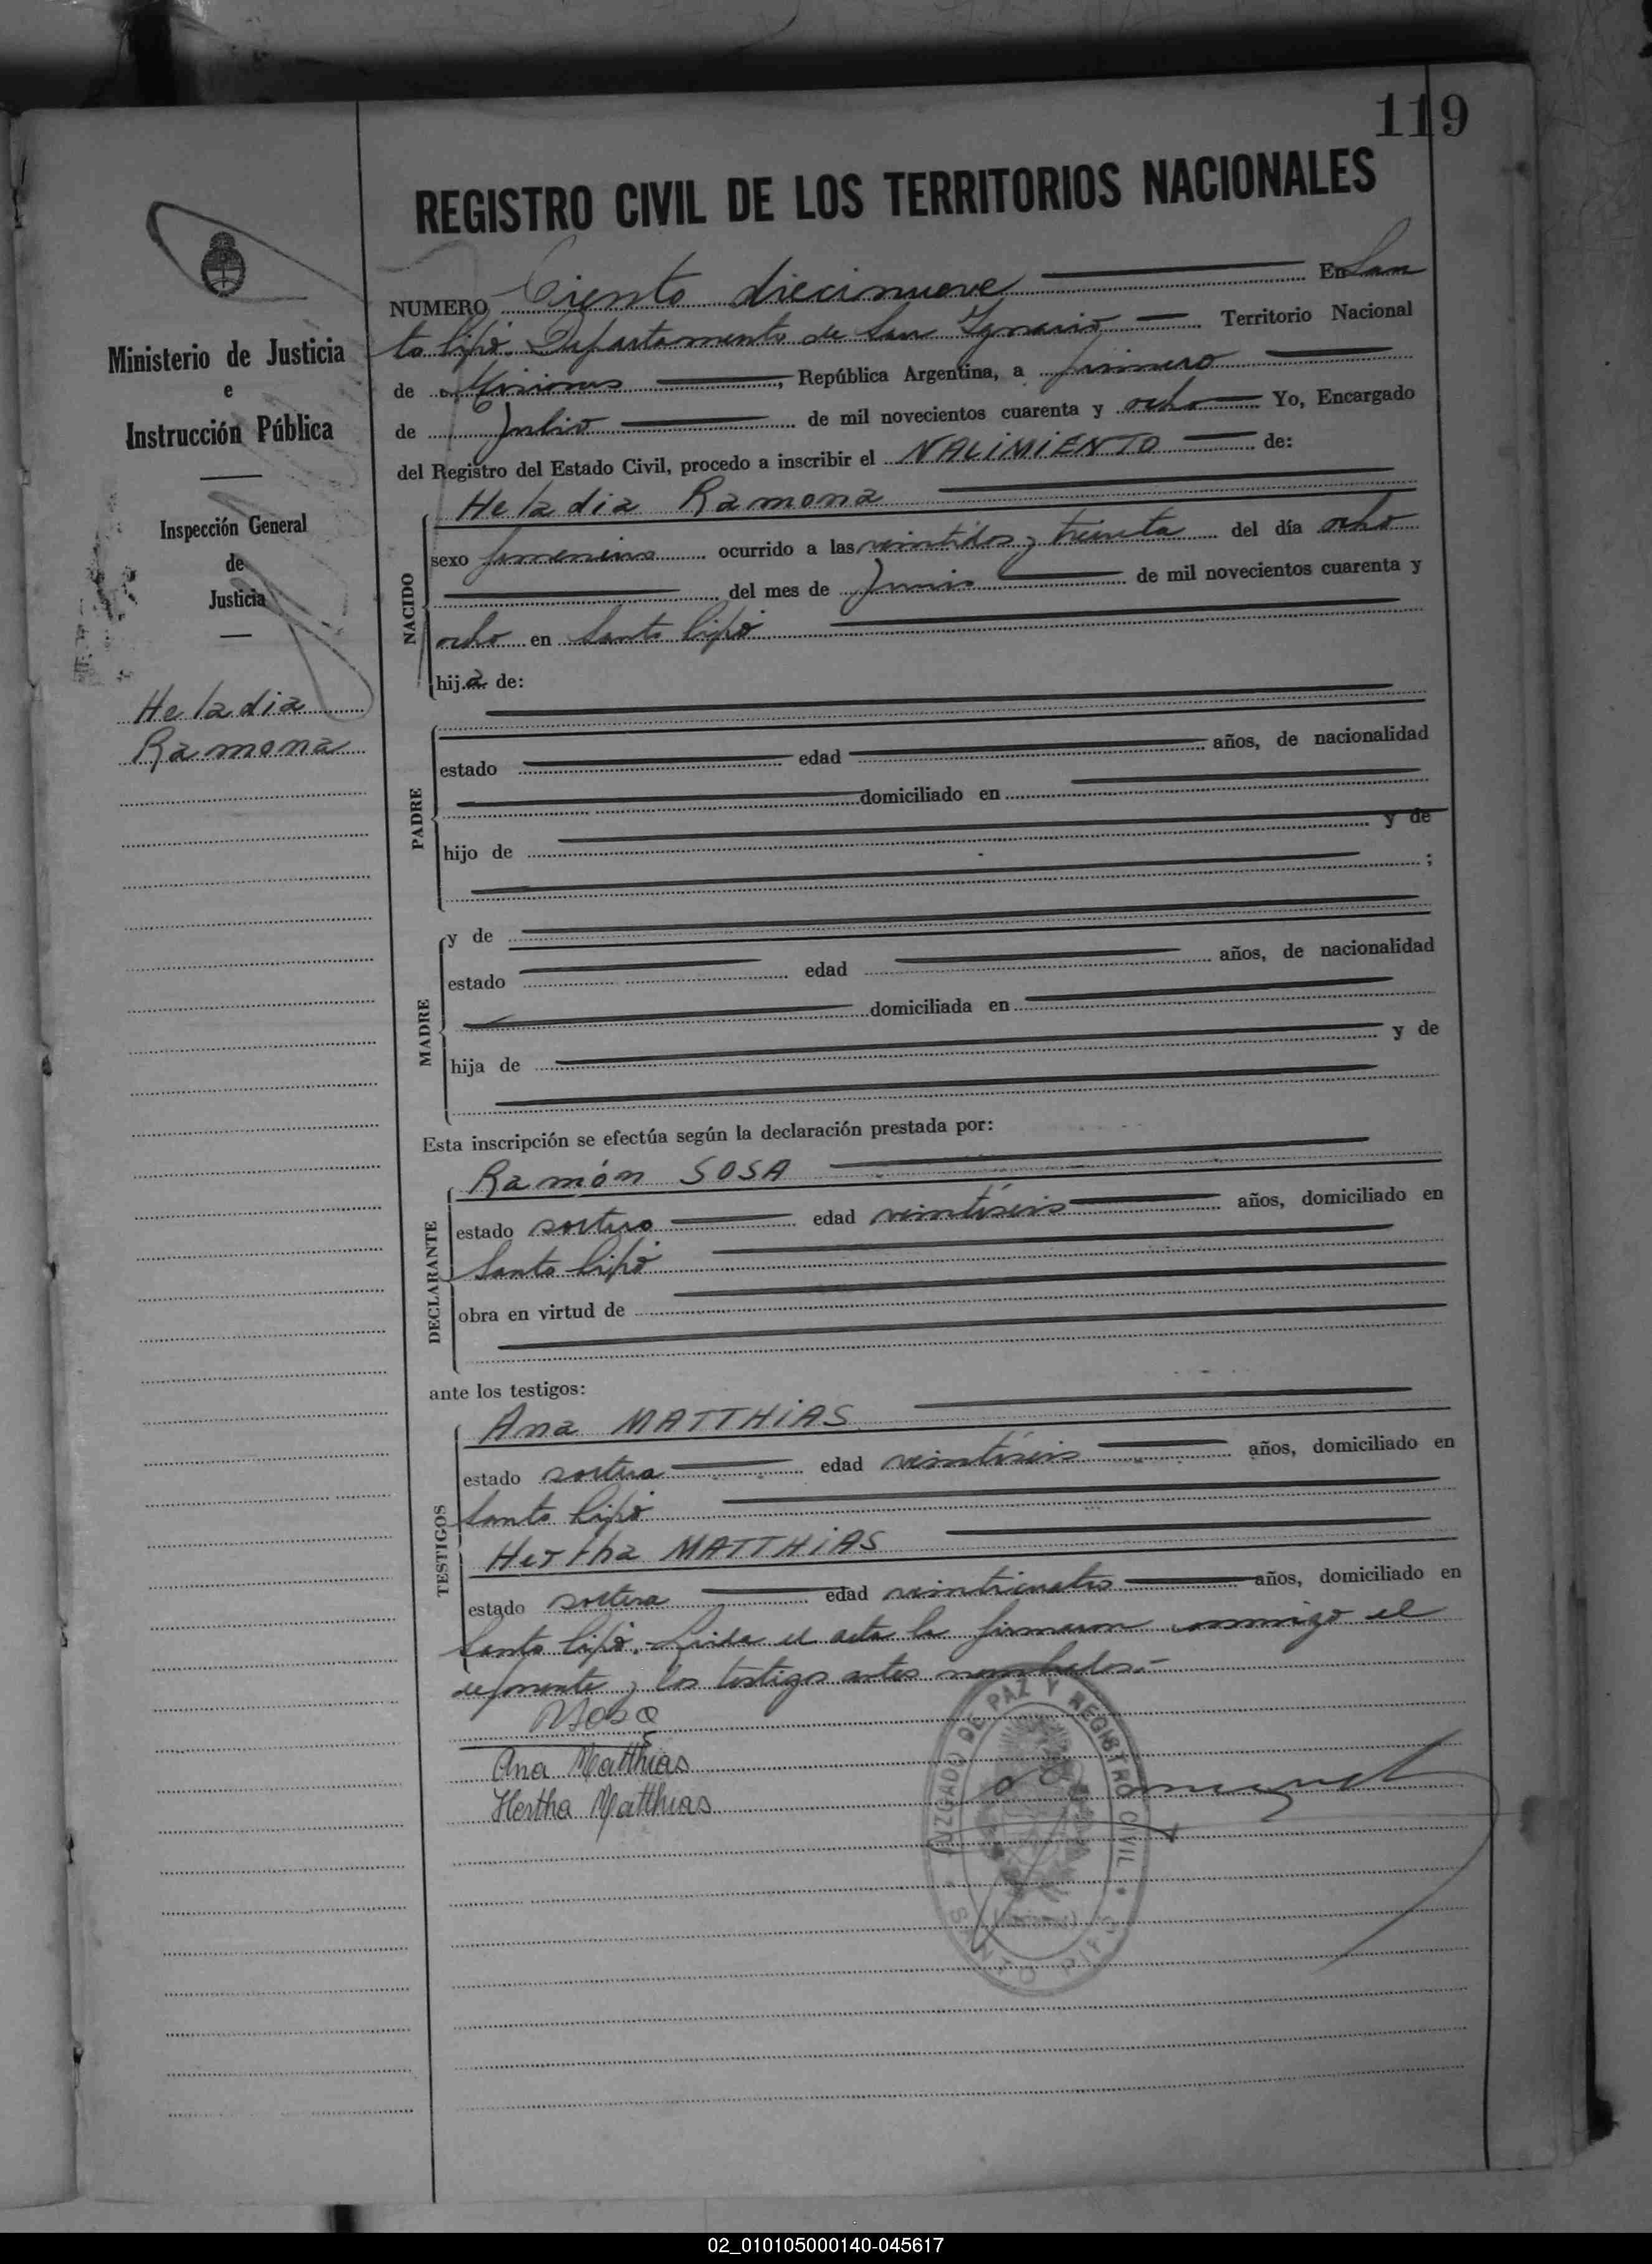 119
REGISTRO CIVIL DE LOS TERRITORIOS NACIONALES
NUMERO Ciento diecinueve En San
to Pipó. Departamento de San Ignacio Territorio Nacional
de Misiones, República Argentina, a primero
de Julio de mil novecientos cuarenta y ocho Yo, Encargado
del Registro del Estado Civil, procedo a inscribir el NACIMIENTO de:
Heladia Ramona
sexo femenino ocurrido a las veintidos y treinta del día ocho
del mes de Junio de mil novecientos cuarenta y
ocho en Santo Pipó
hija de:
NACIDO
Ministerio de Justicia
e
Instrucción Pública
Inspección General
de
Justicia
Heladia
Ramona
estado edad años, de nacionalidad
domiciliado en
hijo de y de
;
PADRE
y de
estado edad años, de nacionalidad
domiciliada en
hija de y de
MADRE
Esta inscripción se efectúa según la declaración prestada por:
Ramón SOSA
estado soltero edad veintiséis años, domiciliado en
Santo Pipó
obra en virtud de
DECLARANTE
ante los testigos:
Ana MATTHiAS
estado soltera edad veintiséis años, domiciliado en
Santo Pipó
Hertha MATTHiAS
estado soltera edad veinticuatro años, domiciliado en
Santo Pipó. Leída el acta la firmaron conmigo el
deponente y los testigos antes nombrados.-
TESTIGOS
RSosa
Ana Matthias
Hertha Matthias
JUZGADO DE PAZ Y REGISTRO CIVIL
SANTO PIPÓ
02_010105000140-045617